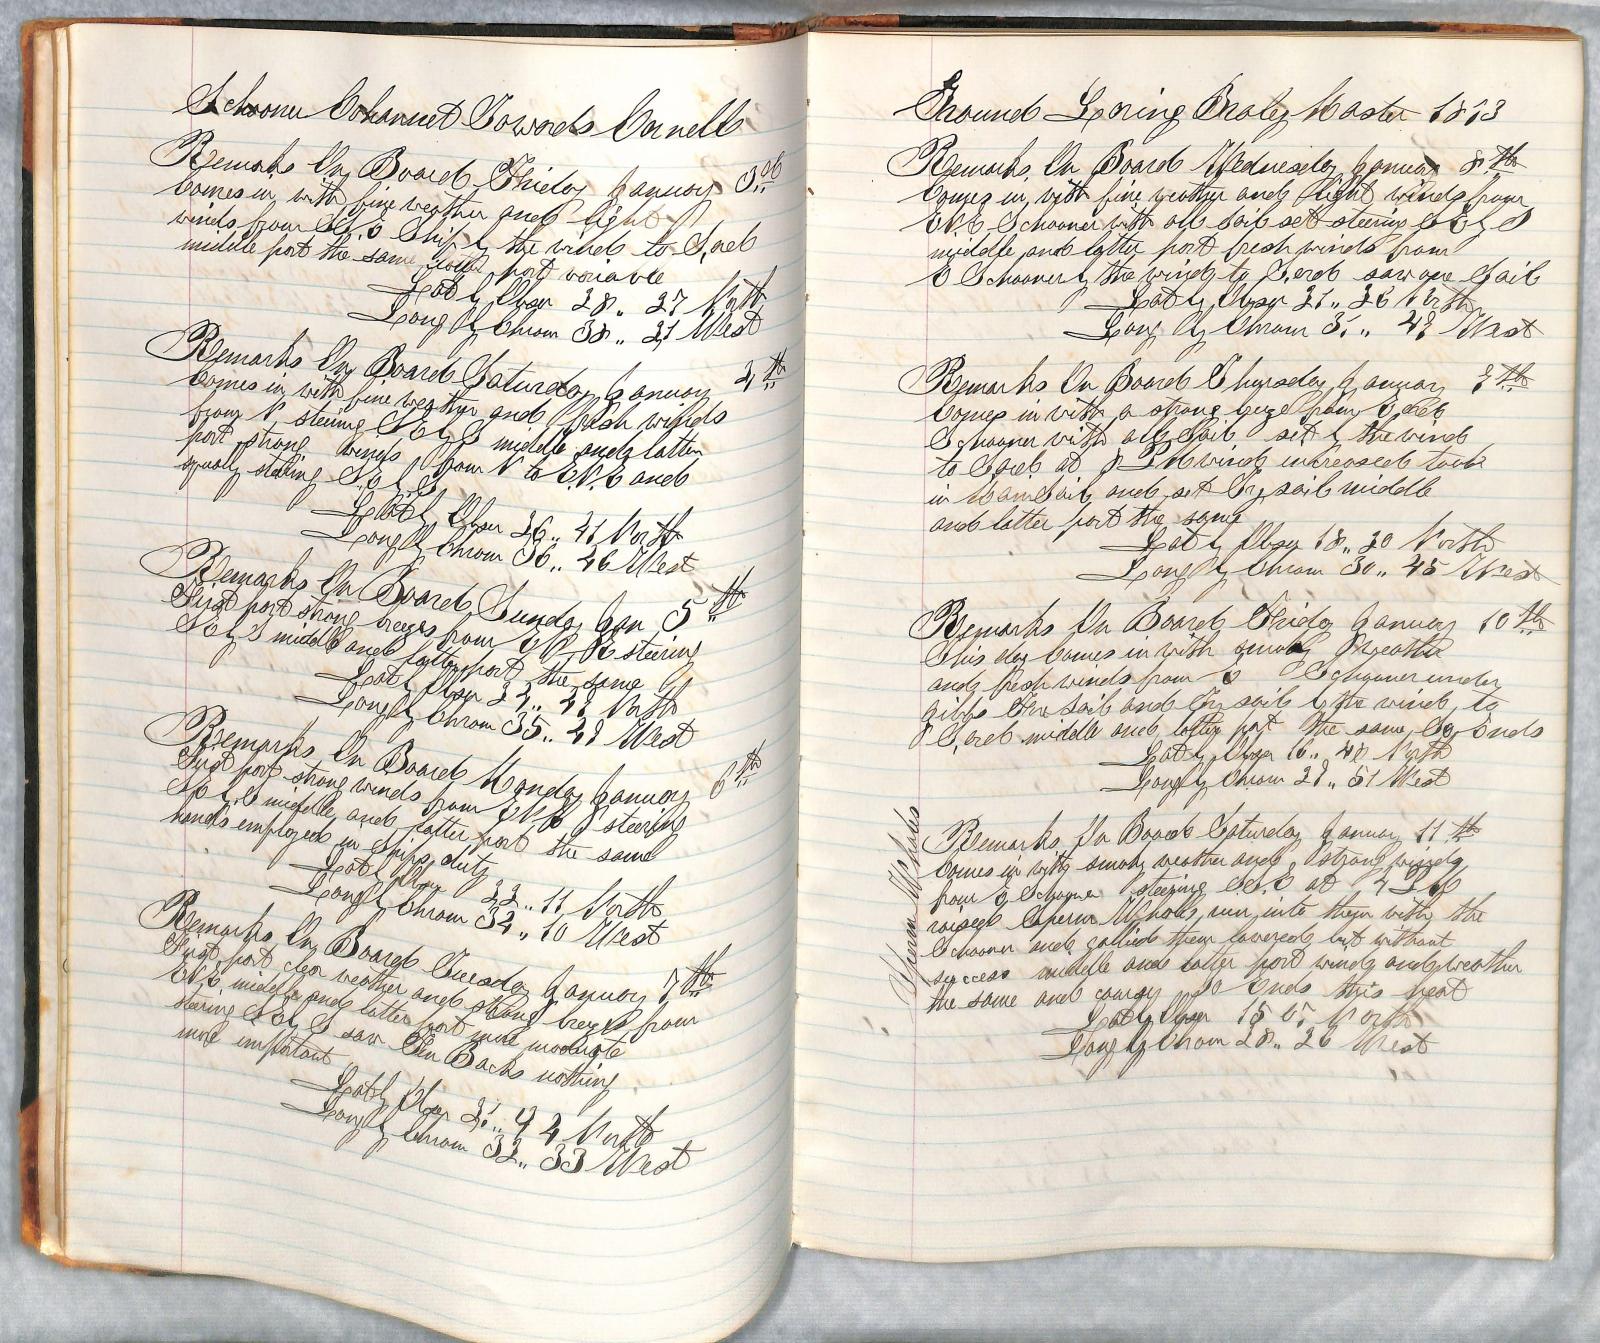 Schooner Cohannet Towards Cornell
Remarks On Board Friday January 3rd
Comes in with fine weather and light
winds from Ship by the wind to S.ard
middle part the same latter part variable
Lat by Obser 28.. 27 North
Long by Chrom 38.. 21 West
Remarks On Board Saturday January 4th
Comes in with fine weather and fresh winds
from N steering SEbyS middle and latter
part strong winds from N to E.N.E and
squally stering S.E by S.
Lat by Obser 26.. 41 North
Long by Chrom 36.. 46 West
Remarks On Board Sunday Jan 5th
First part strong breezes from steering
SEbyS middle and latter part the same
Lat by Obser North
Long by Chrom 35.. West
Remarks On Board Monday January 6th
First part strong winds from steering
middle and latter part the same
hands employed in ships duty
Lat by Obser 11 North
Long by Chrom 10 West
Remarks On Board Tuesday January 7th
First part clear weather and strong breezes from
E.N.E middle and latter part more moderate
stering SEbyS saw Fin Backs nothing
more important
Lat by Obser North
Long by Chrom 33 West
Ground Loring Braley Master 1873
Remarks On Board Wednesday January 8th
Comes in with fine weather and light winds from
E.N.E Schooner with all sail set steering SEbyS
middle and latter part fresh winds from
E Schooner by the wind to S.ard saw one Sail
Lat by Obser North
Long by Chrom West
Remarks On Board Thursday January 9th
Comes in with a strong breeze from E.ard
Schooner with all Sail set by the wind
to S.ard at PM wind increased took
in Main Sail and set Try sail middle
and latter part the same
Lat by Obser 18.. 30 North
Long by Chrom 30.. 45 West
Remarks On Board Friday January 10th
This day Comes in with smoky Weather
and fresh winds from E Schooner under
gibbs Fore Sail and Try sail by the wind to
S.ard middle and latter part the same So Ends
Lat by Obser 16.. North
Long by Chrom 51 West
Remarks On Board Saturday January 11th
Comes in with smoky weather and strong winds
from E Schooner steering at PM
raised Sperm Whales run into them with the
Schooner and gallied them lowered but without
success middle and latter part winds and weather
the same and So Ends this
Lat by Obser 15 North
Long by Chrom 28.. 26 West
Sperm Whales